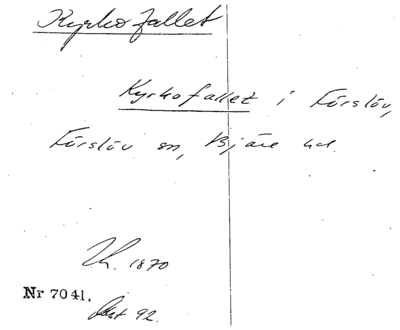 Kyrkofallet
Kyrkofallet i Förslöv,
Förslöv sn, Bjäre hd.
1870
Nr 7041.
92.